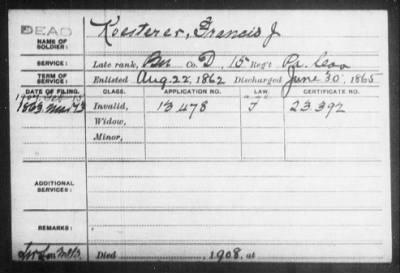 DEAD
NAME OF SOLDIER: Koesterer, Francis J
SERVICE: Late rank, Pvt Co. D, 15 Reg't Pa. Cav
TERM OF SERVICE: Enlisted Aug. 22, 1862 Discharged June 30, 1865
DATE OF FILING. CLASS. APPLICATION NO. LAW. CERTIFICATE NO.
1863 Invalid, 13478 23392
Widow,
Minor,
ADDITIONAL SERVICES:
REMARKS:
Died 1908, at